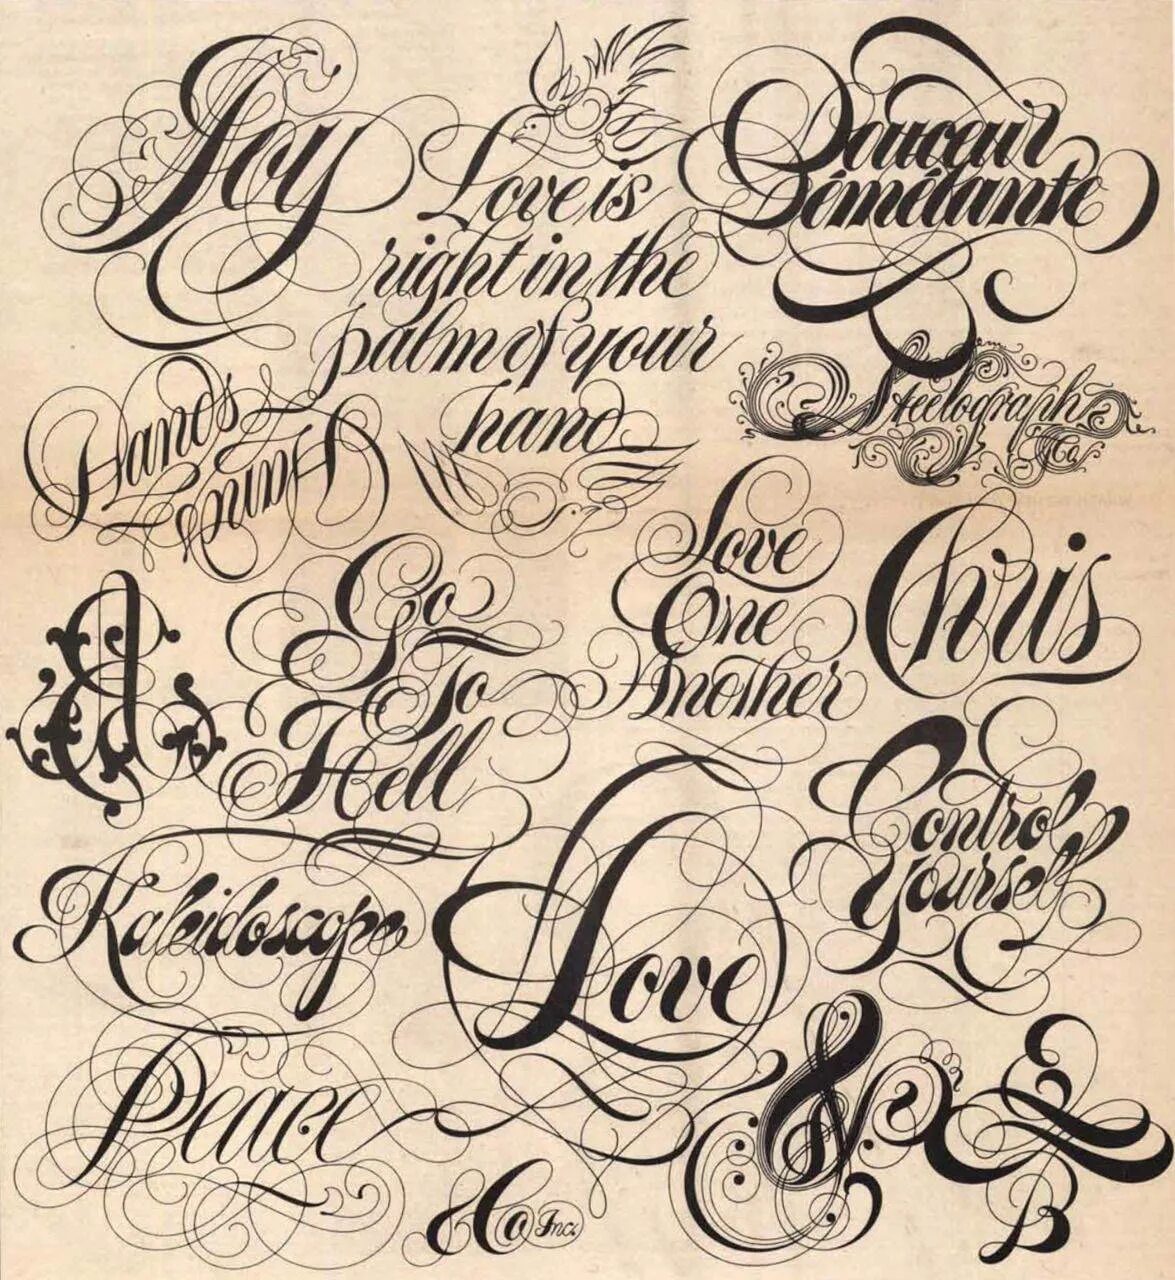 Joy
Love is
right in the
palm of your
hand
Douceur
Démélante
Hands
Hands
Steelograph
Co
Go
To
Hell
Love
One
Another
Chris
Kaleidoscope
Love
Control
Yourself
Peace
& Co Inc.
B